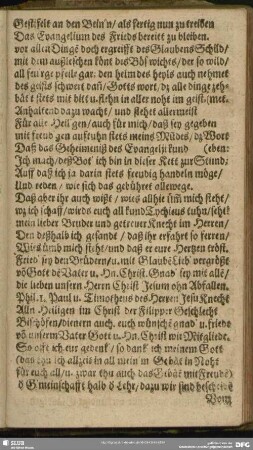 Gestifelt an den Bein'n/ als fertig nun zu treiben
Das Evangelium des Frieds bereitt zu bleiben.
vor allen Dingē doch ergreifft des Glaubens Schild/
mit dem außleschen könt des Bös wichts/ der so wild/
all feurge pfeile gar. den helm des heyls auch nehmet
des geists sein das Gotts wort/ dz alle dinge
bät t stets mit bitt u. flehn in aller noht im geist/
Anhaltend dazu wacht/ und stehet allermeist
Für alle Heil gen/ auch für mich/ daß sey gegeben
mit freud gen aufthun stets meins Mūdes/ dz Wort
Daß das Geheimniß des Evangelii kund (eben:
Ich mach/ deß Bot' ich bin in dieser Kett zur Stund;
Auff daß ich ja darin stets freudig handeln möge/
Und reden/ wie sich das gebühret allewege.
Daß aber ihr auch wißt/ wies allhie üm mich steht/
wz ich schaff/ wirds euch all kund Tychicus tuhn/ seht!
mein lieber Bruder und getreuer Knecht im Herren/
Den deßhalb ich gesandt/ daß ihr erfahrt so ferren/
Wies ümb mich steht/ und daß er eure Hertzen tröst.
Fried sey den Brüdern/ u. mit Glaubē Lieb vergrößt
vō Gott dē Vater u. Hn. Christ. Gnad sey mit allē/
die lieben unsern Herrn Christ Jesum ohn Abfallen.
Phil. 1. Paul u. Timotheus des Herren Jesu Knecht
Alln Heiligen im Christ der Filipper Geschlecht
Bischöfen/ dienern auch. euch wünscht gnad u. friede
vō unserm Vater Gott u. Hn. Christ wie Mitgliede.
So offt ich eur gedenk/ so dank ich meinem Gott
(das thu ich allzeit in all mein m Gebät in Noht
für euch all/ u. zwar thu auch das Gebät mit Freude)
d Gmeinschafft halb d Lehr/ dazu wir sind bescheidē
Vom
SLUB